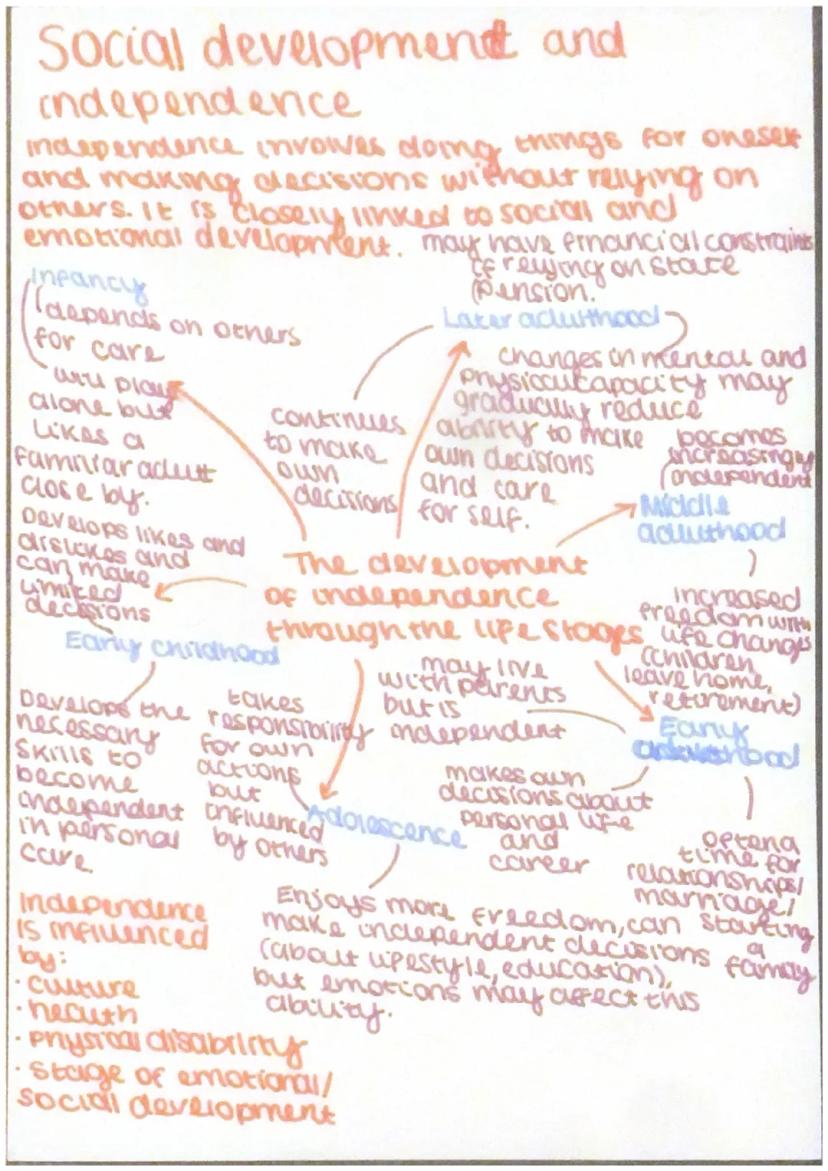 Social development and
independence
Independence involves doing things for oneself
and making decisions without relying on
others. It is closely linked to social and
emotional development.
may have financial constraints
if relying on state
pension.
Later adulthood
changes in mental and
physical capacity may
gradually reduce
ability to make
own decisions
and care
for self.
continues
to make
own
decisions
Infancy
depends on others
for care
will play
alone but
likes a
familiar adult
close by.
becomes
increasingly
independent
Middle
adulthood
increased
freedom with
life changes
(children
leave home,
retirement)
The development
of independence
through the life stages
Develops likes and
dislikes and
can make
limited
decisions
Early childhood
Develops the
necessary
skills to
become
independent
in personal
care.
takes
responsibility
for own
actions
but
influenced
by others
Adolescence
Enjoys more freedom, can
make independent decisions
(about lifestyle, education),
but emotions may affect this
ability.
may live
with parents
but is
independent
Early
adulthood
makes own
decisions about
personal life
and
career
often a
time for
relationships/
marriage/
starting
a
family
Independence
is influenced
by:
· culture
· health
· physical disability
· stage of emotional/
social development